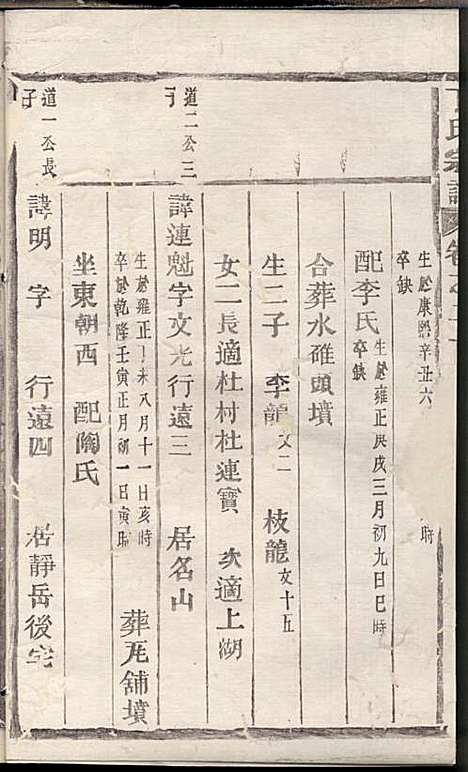 氏宗譜 卷之二十
生於康熙辛丑六 時
卒缺
配李氏 生於雍正庚戌三月初九日巳時
卒缺
合葬水碓頭墳
生二子 李龍文二 枝龍文十五
女二長適杜村杜連寶 次適上湖
道二公三子
諱連魁字文光行遠三 居名山
生於雍正丁未八月十一日亥時
卒於乾隆壬寅正月初一日寅時
葬瓦舖墳
坐東朝西 配陶氏
道一公長子
諱明 字 行遠四 居靜岳後宅